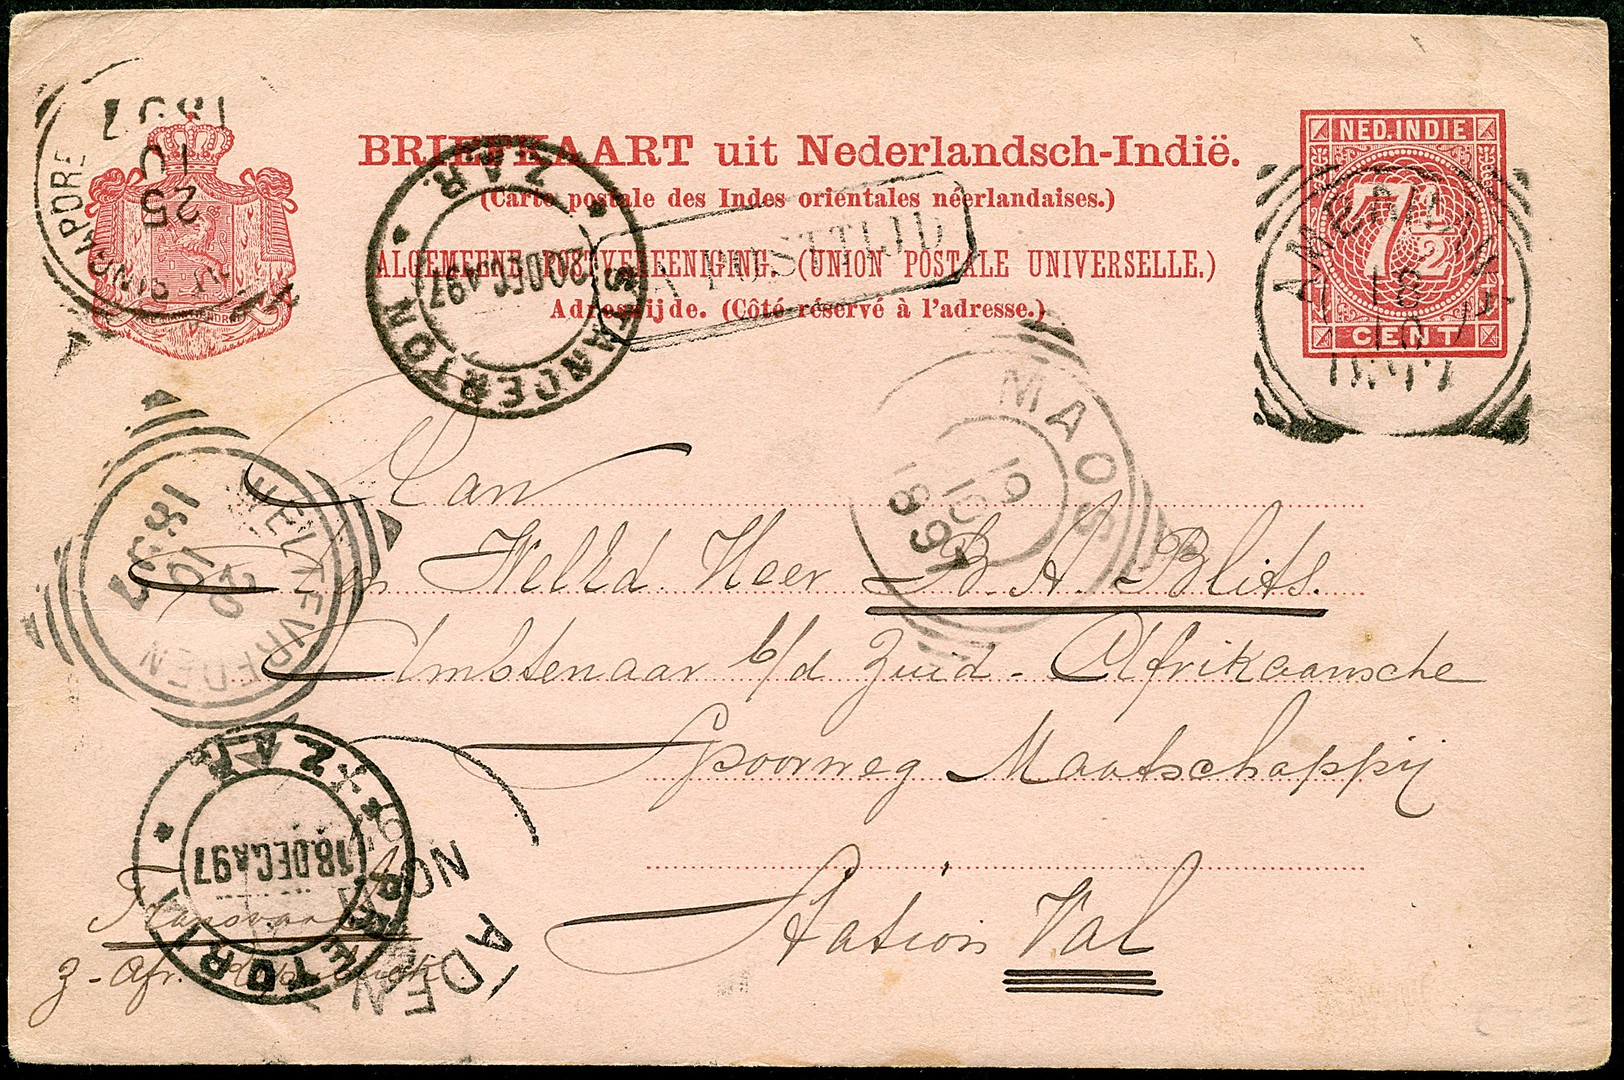 BRIEFKAART uit Nederlandsch-Indië.
(Carte postale des Indes orientales néerlandaises.)
ALGEMEENE POSTVEREENIGING. (UNION POSTALE UNIVERSELLE.)
Adreszijde. (Côté réservé à l'adresse.)
NED. INDIE
7 1/2
CENT
SINGAPORE
25
10
1897
STANDERTON
Z.A.R.
20 DEC 97
NA POSTTIJD
18
10
MAOS
19
10
1897
WELTEVREDEN
20
10
1897
PRETORIA
Z.A.R.
18. DEC 97
ADEN
NO
Aan
den WelEd. Heer B. A. Blits.
Ambtenaar b/d Zuid-Afrikaansche
Spoorweg Maatschappij
Station Val
Transvaal
Z-Afr. Republiek.